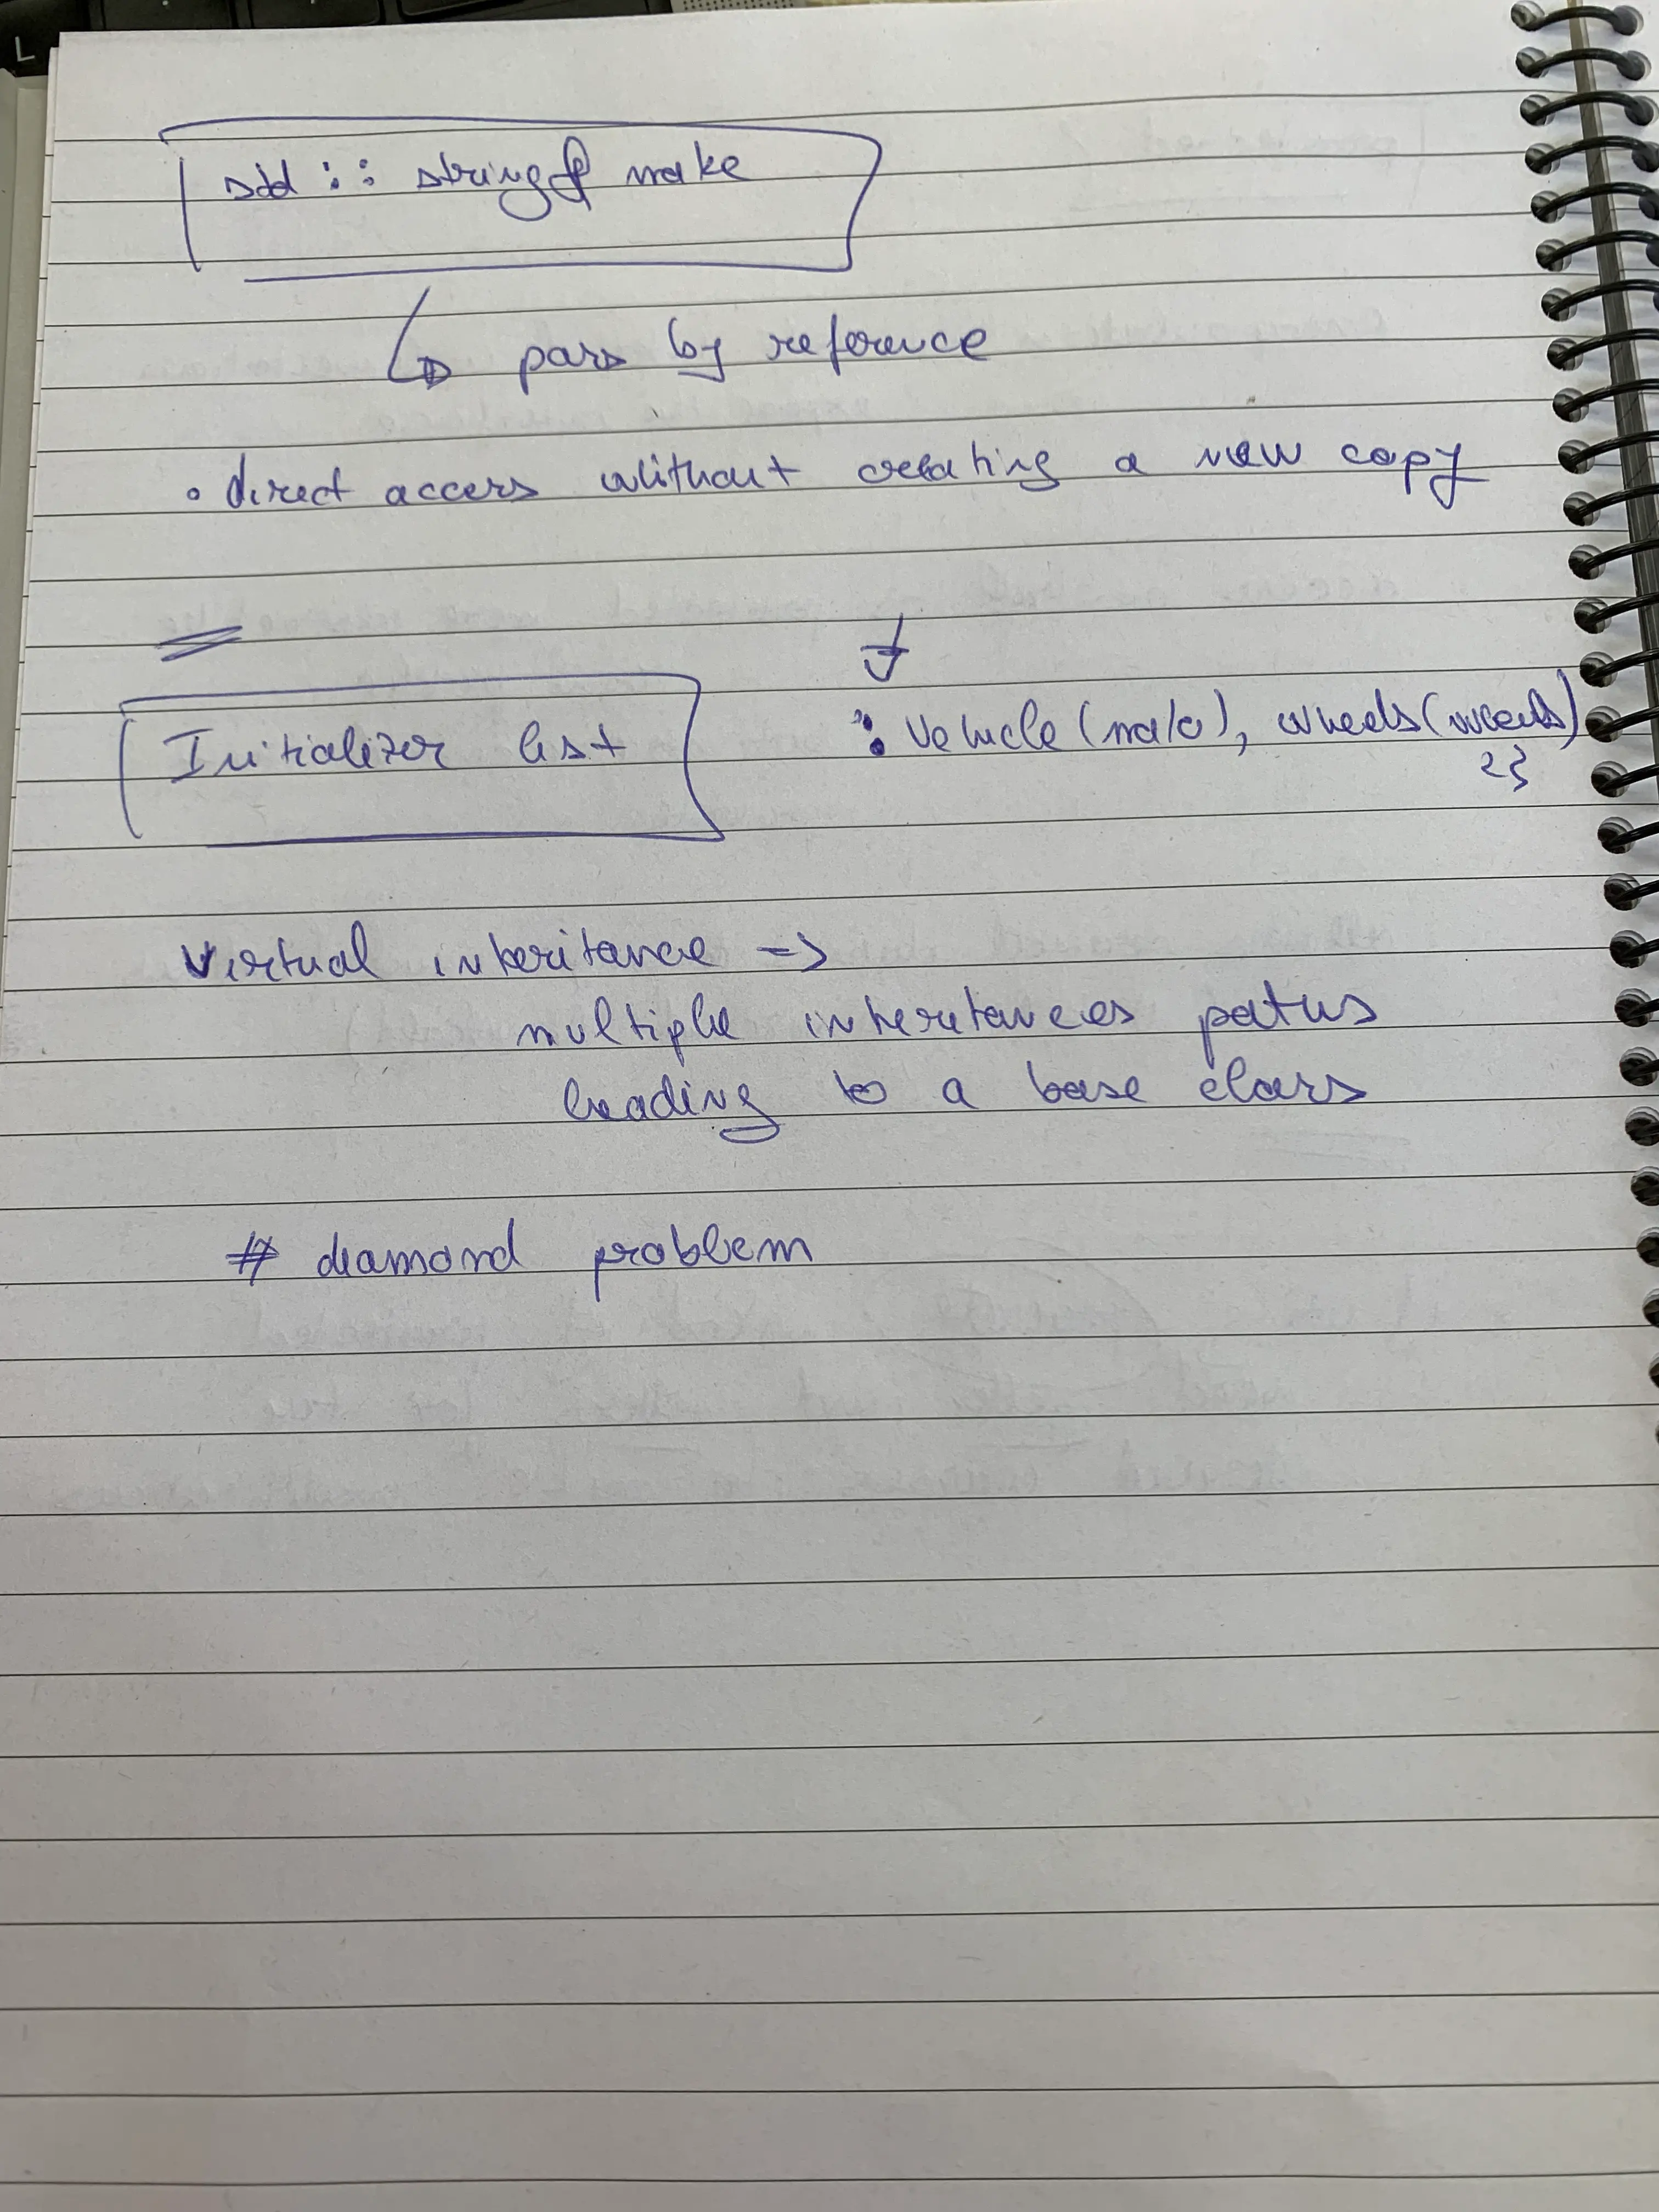 std :: string& make
pass by reference
• direct access without creating a new copy
Initializer list
: Vehicle (make), wheels (wheels)
{}
Virtual inheritance ->
multiple inheritances paths
leading to a base class
# diamond problem